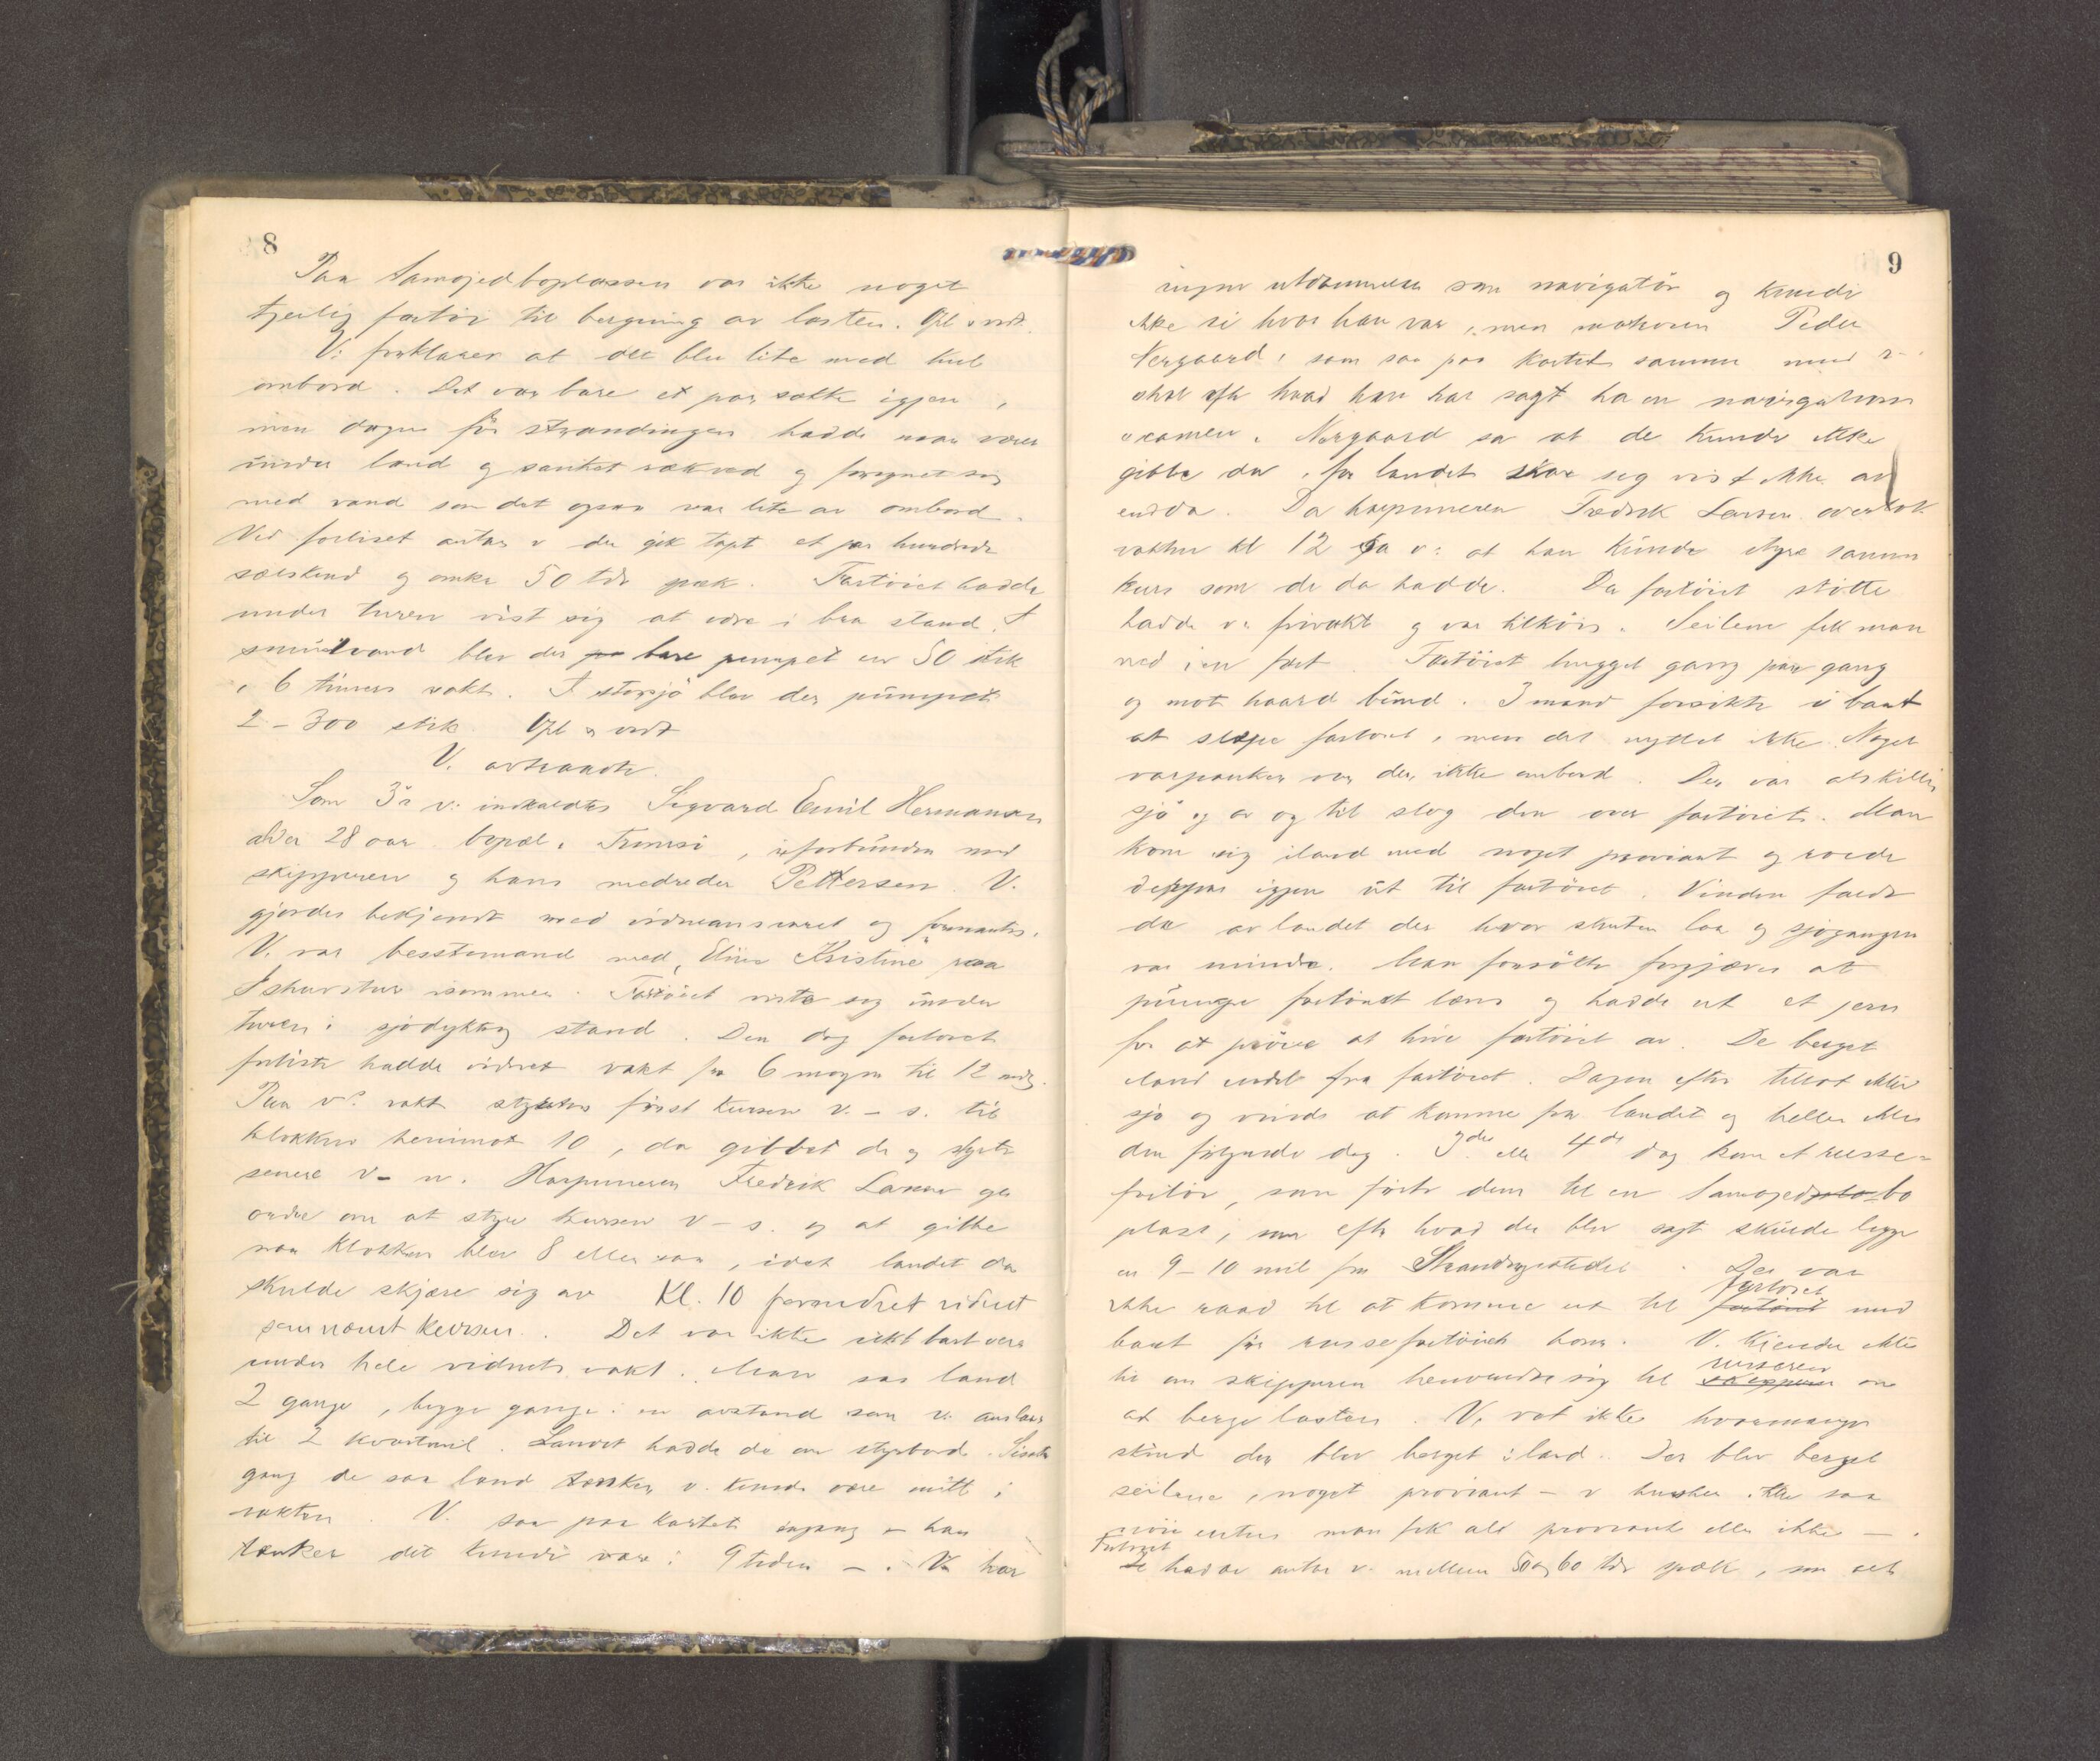 8
Paa Samojedboplassen var ikke noget
tjenlig fartöi til bergning av lasten. Opl. vedt.
V: forklarer at det blev lite med kul
ombord. Det var bare et par sække igjen,
men dagen för strandingen hadde man været
under land og sanket rækved og forsynet sig
med vand som det ogsaa var lite av ombord.
Ved forliset antar v. der gik tapt et par hundrede
sælskind og omkr. 50 tdr spæk. Fartöiet hadde
under turen vist sig at være i bra stand. I
smult vand blev der bare pumpet en 50 stik
i 6 timers vakt. I storsjö blev der pumpet
2-300 stik. Opl. vedt
V. avtraadte.
Som 3die v. indkaldtes Sigvard Emil Hermansen
alder 28 aar bopæl i Tromsö, uforbunden med
skipperen og hans medreder Pettersen. V.
gjordes bekjendt med vidneansvaret og formantes.
V. var besstemand med "Eline Kristine" paa
Ishavstur isommer. Fartöiet viste sig under
turen i sjödyktig stand. Den dag fartöiet
forliste hadde vidnet vakt fra 6 morgen til 12 midg.
Paa v's vakt styrtes först kursen v. - s. til
klokken henimot 10, da gibbet de og styrte
senere v - n. Harpuneren Fredrik Larsen ga
ordre om at styre kursen v - s. og at gibbe
naar klokken blev 8 eller saa, idet landet da
skulde skjære sig av. Kl. 10 forandret vidnet
som nævnt kursen. Det var ikke sikt bart veir
under hele vidnets vakt. Man saa land
2 gange, begge gange i en avstand som v. anslaar
til 2 kvartmil. Landet hadde de om styrbord. Sidste
gang de saa land tænker v. kunde være midt i
vakten. V. saa paa kartet engang - han
tænker det kunde være i 9 tiden -. V. har
9
ingen utdannelse som navigatör og kunde
ikke si hvor han var, men matrosen Peder
Nergaard, som saa paa kartet sammen med v.
skal efter hvad han har sagt ha en navigations
examen. Nergaard sa at de kunde ikke
gibbe da, for landet skar seg vist ikke av
endda. Da harpuneren Fredrik Larsen overtok
vakten kl 12 sa v: at han kunde styre samme
kurs som de da hadde. Da fartöiet stötte
hadde v. frivakt og var tilköis. Seilene fik man
ned i en fart. Fartöiet hugget gang paa gang
og mot haard bund. 3 mand forsökte i baat
at slæpe fartöiet, men det nyttet ikke. Noget
varpanker var der ikke ombord. Der var atskillig
sjö og av og til slog den over fartöiet. Man
kom sig iland med noget proviant og rodde
derpaa igjen ut til fartöiet. Vinden faldt
da av landet der hvor skuten laa og sjögangen
var mindre. Man forsökte forgjæves at
pumpe fartöiet læns og hadde ut et jern
for at pröve at hive fartöiet av. De berget
iland endel fra fartöiet. Dagen efter tillot ikke
sjö og vind at komme fra landet og heller ikke
den fölgende dag. 3die eller 4de dag kom et russe-
fartöi, som förte dem til en Samojedbo
plass, som efter hvad der blev sagt skulde ligge
en 9-10 mil fra Strandingsstedet. Der var
ikke raad til at komme ut til fartöiet med
baat för russefartöiet kom. V. kjender ikke
til om skipperen henvendte sig til russeren om
at berge lasten. V. vet ikke hvormange
skind der blev berget iland. Der blev berget
seilene, noget proviant - v husker ikke saa
nöie enten man fik alt proviant eller ikke -.
Fartöiet hadde antar v. mellem 50 og 60 tdr spæk, som alt